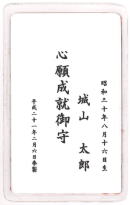 昭和三十年八月十六日生
城山 太郎
心願成就御守
平成二十一年二月六日奉製